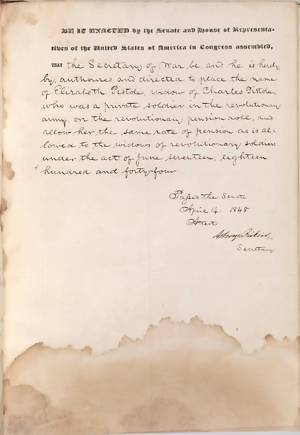 BE IT ENACTED by the Senate and House of Representa-
tives of the United States of America in Congress assembled,
THAT the Secretary of War be and he is here
by, authorised and directed to place the name
of Elizabeth Pistole, widow of Charles Pistole
who was a private soldier in the revolutionary
army, on the revolutionary pension roll, and
allow her the same rate of pension as is al-
lowed to the widows of revolutionary soldiers
under the act of June seventeen, eighteen
hundred and forty four
Passed the Senate
April 14 1848
Attest
Secretary